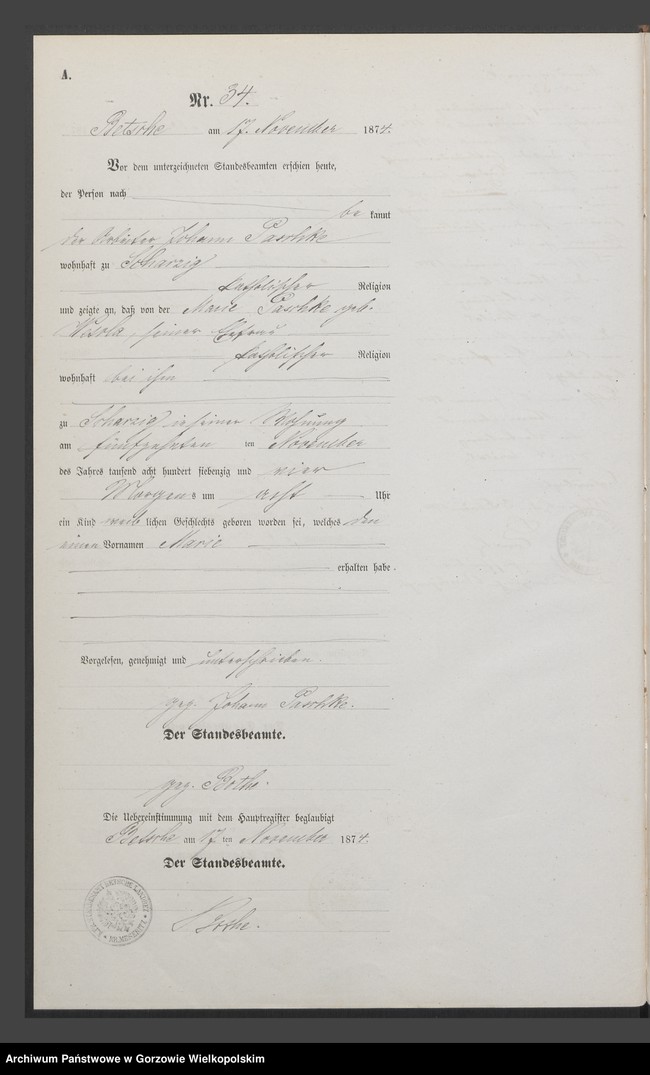 A.
Nr. 34.
Betsche am 17. November 1874.
Vor dem unterzeichneten Standesbeamten erschien heute,
der Person nach
be kannt
der Arbeiter Johann Paschke
wohnhaft zu Scharzig
katholischer Religion
und zeigte an, daß von der Marie Paschke geb.
seiner Ehefrau
katholischer Religion
wohnhaft bei ihm
zu Scharzig in seiner Wohnung
am fünfzehnten ten November
des Jahres tausend acht hundert siebenzig und vier
Morgens um acht Uhr
ein Kind weib lichen Geschlechts geboren worden sei, welches den
einen Vornamen Marie
erhalten habe.
Vorgelesen, genehmigt und unterschrieben.
gez. Johann Paschke.
Der Standesbeamte.
gez. Bothe.
Die Uebereinstimmung mit dem Hauptregister beglaubigt
Betsche am 17 ten November 1874.
Der Standesbeamte.
Bothe.
Archiwum Państwowe w Gorzowie Wielkopolskim